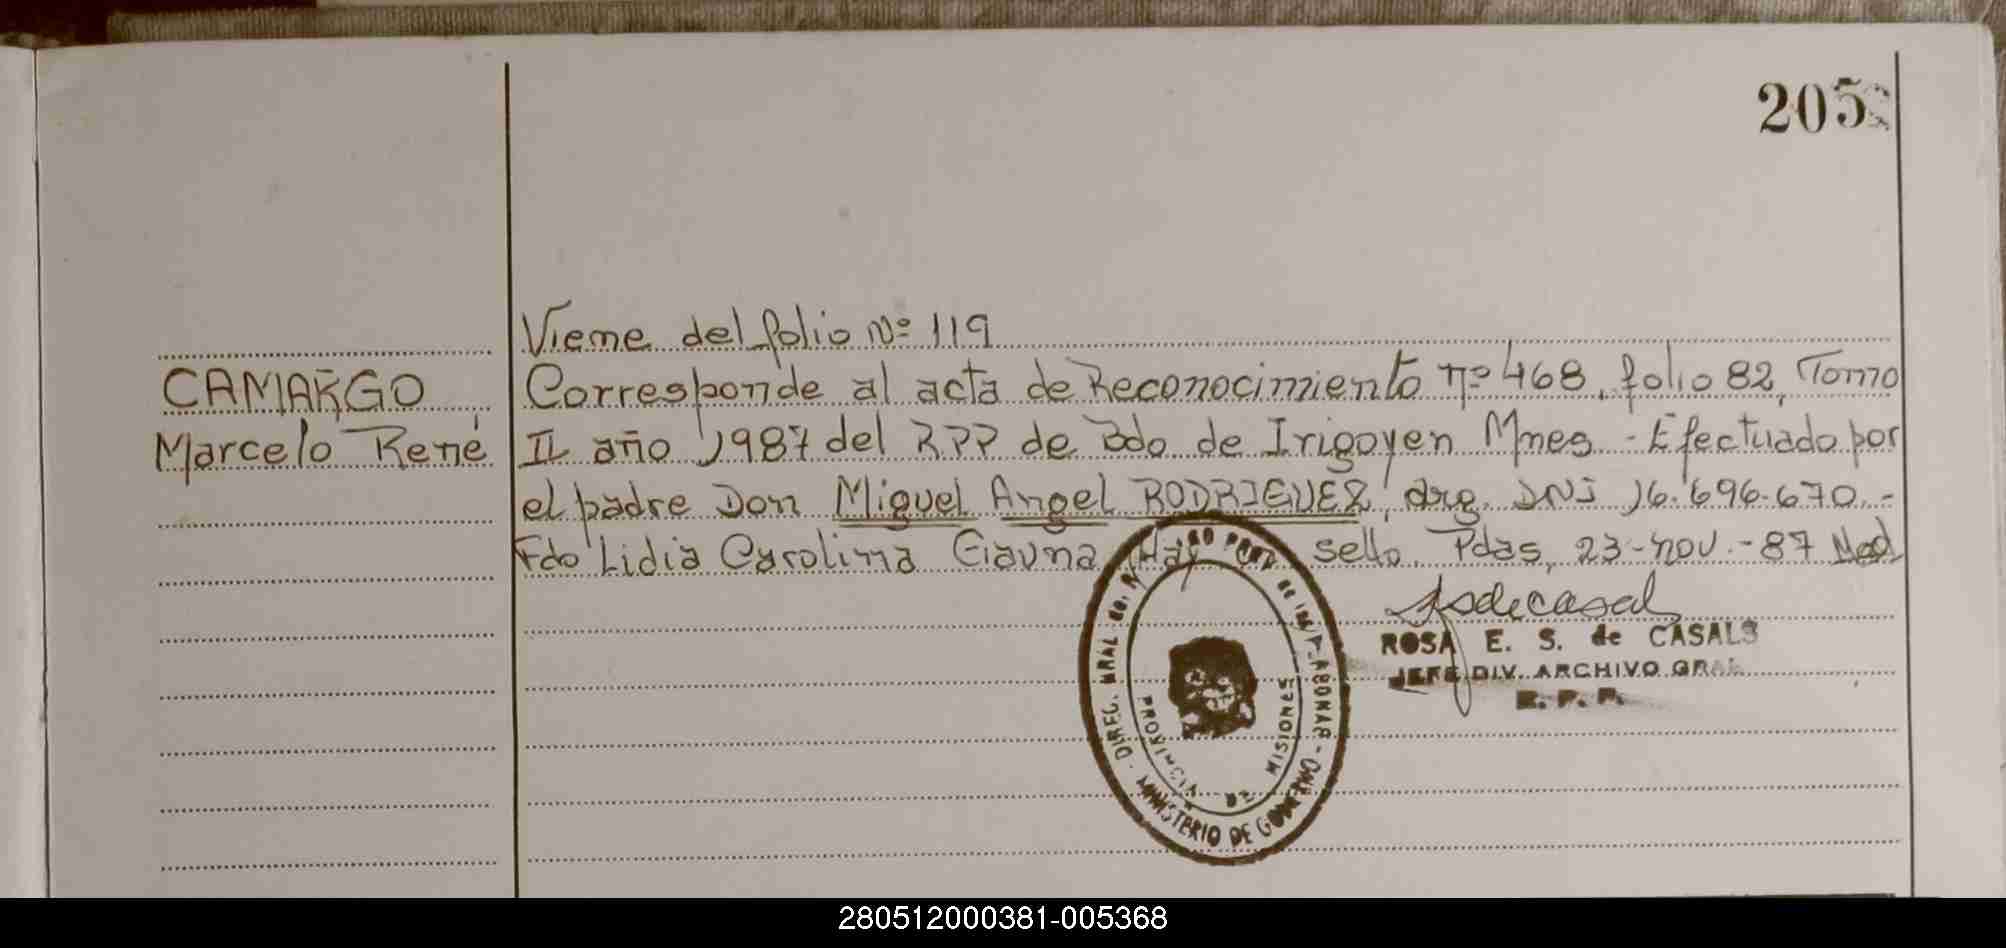 205
Viene del folio Nº 119
CAMARGO
Marcelo René
Corresponde al acta de Reconocimiento nº 468, folio 82, Tomo
II año 1987 del RPP de Bdo de Irigoyen Mnes - Efectuado por
el padre Don Miguel Angel RODRIGUEZ, arg. DNI 16.696.670.-
Fdo Lidia Carolina Gauna Hay sello. Pdas, 23-nov.-87
ROSA E. S. de CASALS
JEFE DIV. ARCHIVO GRAL
R. P. P.
PROVINCIA DE MISIONES
MINISTERIO DE GOBIERNO
280512000381-005368